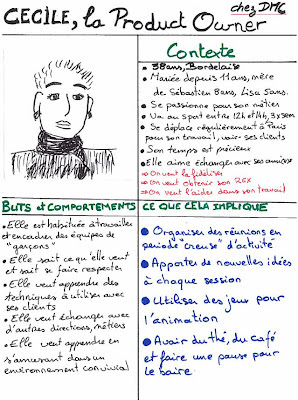 CECILE, la Product Owner
chez DMC
Contexte
38ans, Bordelaise
Mariée depuis 11 ans, mère
de Sébastien 8ans, Lisa 5ans.
Se passionne pour son métier
Va au sport entre 12h et 14h, 3x sem
Se déplace régulièrement à Paris
pour son travail, voir ses clients
Son temps est précieux
Elle aime échanger avec ses ami(e)s
⇒ On veut la fidéliser
⇒ On veut obtenir son
⇒ On veut l'aider dans son travail
BUTS et COMPORTEMENTS
Elle est habituée à travailler
et encadrer des équipes de
"garçons"
Elle sait ce qu'elle veut
et sait se faire respecter
Elle veut apprendre des
techniques à utiliser avec
ses clients
Elle veut échanger avec
d'autres directions, métiers
Elle veut apprendre en
s'amusant dans un
environnement convivial
CE QUE CELA IMPLIQUE
Organiser des réunions en
période "creuse" d'activité
Apporter de nouvelles idées
à chaque session
Utiliser des jeux pour
l'animation
Avoir du thé, du café
et faire une pause pour
le boire